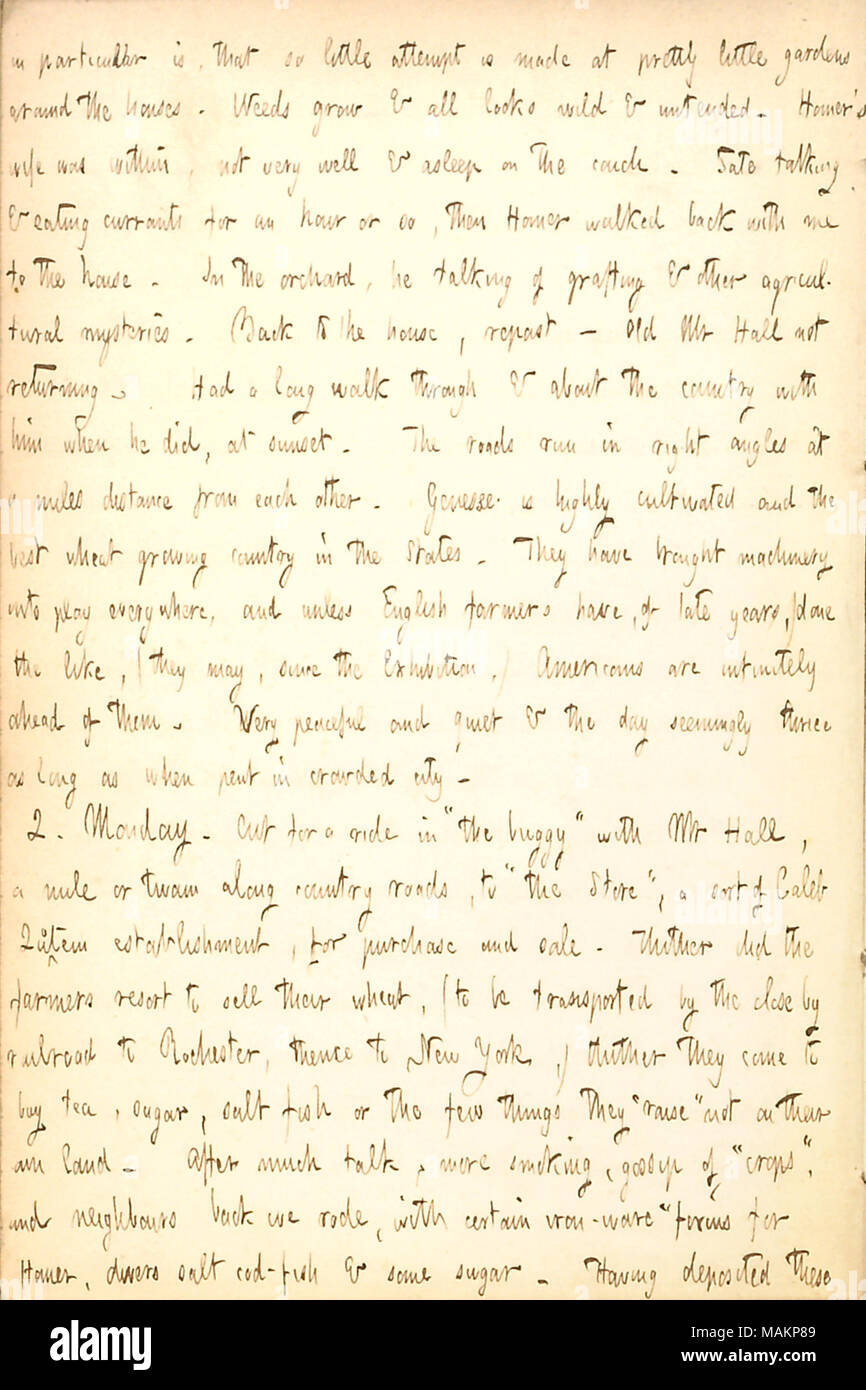 in particular is, that so little attempt is made at pretty little gardens
around the houses. Weeds grow & all looks wild & untended. Homer's
wife was within, not very well & asleep on the couch. Sate talking
& eating currants for an hour or so, then Homer walked back with me
to the house. In the orchard, he talking of grafting & other agricul-
tural mysteries. Back to the house, repast — Old Mr Hall not
returning. Had a long walk through & about the country with
him when he did, at sunset. The roads run in right angles at
a miles distance from each other. Genesse is highly cultivated and the
best wheat growing country in the States. They have brought machinery
into play everywhere, and unless English farmers have, of late years, done
the like, (they may, since the Exhibition,) Americans are infinitely
ahead of them. Very peaceful and quiet & the day seemingly thrice
as long as when pent in crowded city —
2. Monday. Out for a ride in "the buggy" with Mr Hall,
a mile or twain along country roads, to "the Store", a sort of Caleb
Quotem establishment, for purchase and sale. Thither did the
farmers resort to sell their wheat, (to be transported by the close by
railroad to Rochester, thence to New York,) thither they come to
buy tea, sugar, salt fish or the few things they "raise" not on their
own land. After much talk, more smoking, gossip of "crops",
and neighbours back we rode, with certain iron-ware "fixins for
Homer, divers salt cod-fish & some sugar. Having deposited these
alamy
Image ID: MAKP89
www.alamy.com